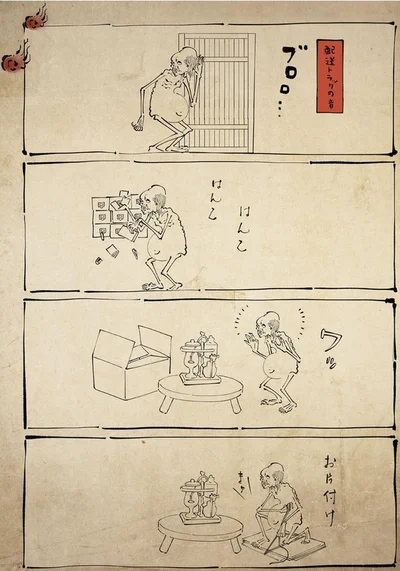 配送トラックの音
ブロロ…
はんこ
はんこ
お片付け